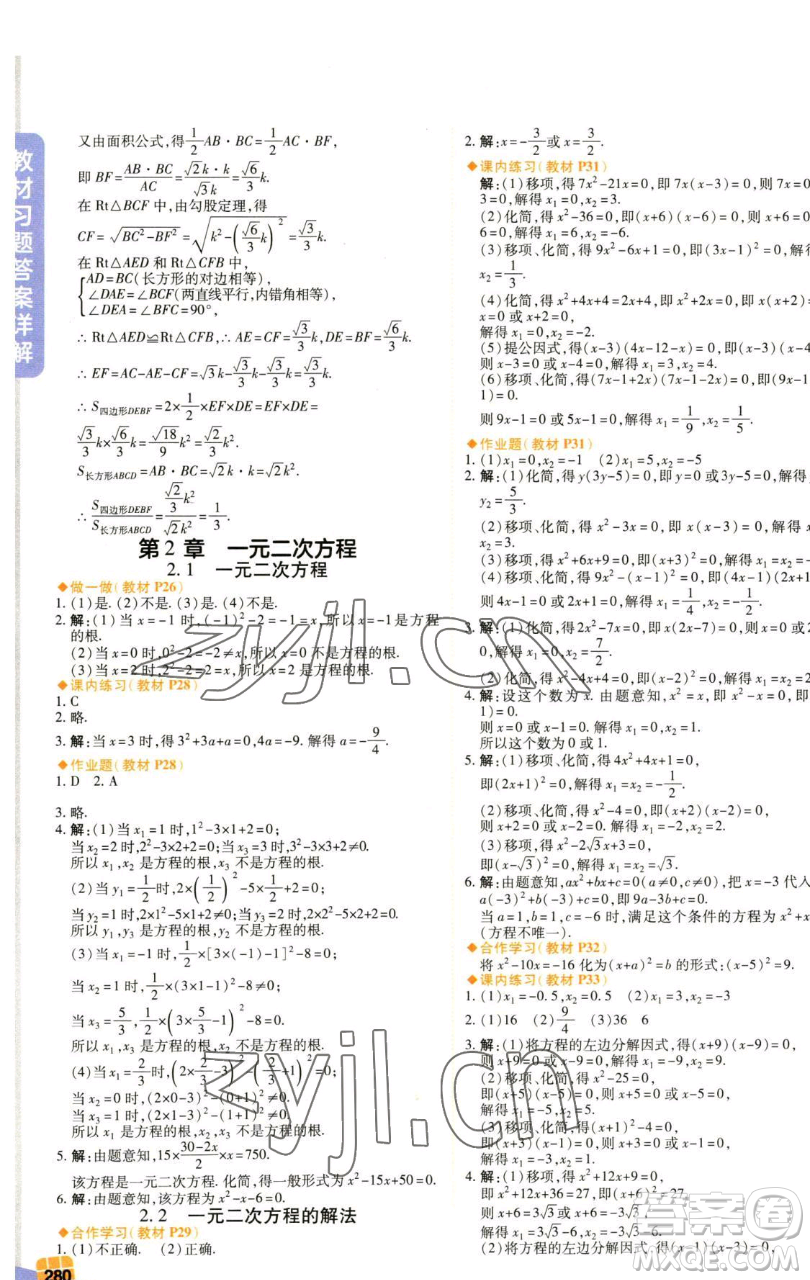 教材习题答案详解
又由面积公式,得1/2AB·BC=1/2AC·BF,
即BF=AB·BC/AC=√2k·k/√3k=√6/3k.
在Rt△BCF中,由勾股定理,得
CF=√(BC²-BF²)=√(k²-(√6/3k)²)=√3/3k.
在Rt△AED和Rt△CFB中,
{AD=BC(长方形的对边相等),
∠DAE=∠BCF(两直线平行,内错角相等),
∠DEA=∠BFC=90°,
∴Rt△AED≌Rt△CFB,∴AE=CF=√3/3k,DE=BF=√6/3k.
∴EF=AC-AE-CF=√3k-√3/3k-√3/3k=√3/3k.
∴S四边形DEBF=2×1/2×EF×DE=EF×DE=
√3/3k×√6/3k=√18/9k²=√2/3k².
S长方形ABCD=AB·BC=√2k·k=√2k².
∴S四边形DEBF/S长方形ABCD=(√2/3k²)/(√2k²)=1/3.
第2章 一元二次方程
2.1 一元二次方程
◆做一做(教材P26)
1.(1)是.(2)不是.(3)是.(4)不是.
2.解:(1)当x=-1时,(-1)²-2=-1=x,所以x=-1是方程
的根.
(2)当x=0时,0²-2=-2≠x,所以x=0不是方程的根.
(3)当x=2时,2²-2=2=x,所以x=2是方程的根.
◆课内练习(教材P28)
1.C
2.略.
3.解:当x=3时,得3²+3a+a=0,4a=-9.解得a=-9/4.
◆作业题(教材P28)
1.D 2.A
3.略.
4.解:(1)当x₁=1时,1²-3×1+2=0;
当x₂=2时,2²-3×2+2=0.
所以x₁,x₂是方程的根.
(2)当y₁=1/2时,2×(1/2)²-1/2-1≠0;
当y₂=1时,2×1²-1-1=0.
所以y₁不是方程的根,y₂是方程的根.
(3)当x₁=1时,1/2×[3×(-1)-1]²-8=0;
当x₂=3时,1/2×(3×3-1)²-8≠0.
当x₃=5/3时,1/2×(3×5/3-1)²-8=0.
(4)当x₁=2/3时,(2×2/3-3)²-(2/3+1)²=0;
当x₂=0时,(2×0-3)²-(0+1)²≠0.
当x₃=1时,(2×1-3)²-(1+1)²≠0.
所以x₁是方程的根,x₂,x₃不是方程的根.
5.解:由题意知,15×(30-2x)/2×x=750.
该方程是一元二次方程.化简,得一般形式为x²-15x+50=0.
6.解:由题意知,该方程为x²-x-6=0.
2.2 一元二次方程的解法
◆合作学习(教材P29)
1.(1)不正确.(2)正确.
280
2.解:x=-3/2或x=3/2.
◆课内练习(教材P31)
解:(1)移项,得7x²-21x=0,即7x(x-3)=0,则7x=0
3=0,解得x₁=0,x₂=3.
(2)化简,得x²-36=0,即(x+6)(x-6)=0,则x+6=0
6=0.解得x₁=-6,x₂=6.
(3)移项、化简,得9x²-6x+1=0,即(3x-1)²=0.解得
x₂=1/3.
(4)化简,得x²+4x+4=2x+4,即x²+2x=0,即x(x+2)=
x=0或x+2=0,
解得x₁=0,x₂=-2.
(5)提公因式,得(x-3)(4x-12-x)=0,即(x-3)
则x-3=0或x-4=0,解得x₁=3,x₂=4.
(6)移项、化简,得(7x-1+2x)(7x-1-2x)=0,即(9x-1
1)=0.
则9x-1=0或5x-1=0,解得x₁=1/9,x₂=1/5.
◆作业题(教材P31)
1.(1)x₁=0,x₂=-1 (2)x₁=5,x₂=-5
2.解:(1)化简,得y(3y-5)=0,即y=0或3y-5=0,解得
y₂=5/3.
(2)移项、化简,得x²-3x=0,即x(x-3)=0,解得
x₂=3.
(3)移项,得x²+6x+9=0,即(x+3)²=0,解得x₁=x₂=
(4)移项、化简,得9x²-(x-1)²=0,即(4x-1)(2x+1)
则4x-1=0或2x+1=0,解得x₁=1/4,x₂=-1/2.
3.解:(1)化简,得2x²-7x=0,即x(2x-7)=0,则x=0
0,解得x₁=0,x₂=7/2.
(2)化简,得x²-4x=0,即x(x-4)=0,解得x₁=0,x₂=
4.解:设这个数为x.由题意知,x²=x,即x²-x=0,即
1)=0.
则x=0或x-1=0.解得x₁=0,x₂=1.
所以这个数为0或1.
5.解:(1)移项、化简,得4x²+4x+1=0,
即(2x+1)²=0,解得x₁=x₂=-1/2.
(2)移项、化简,得x²-4=0,即(x+2)(x-2)=0.
则x+2=0或x-2=0.解得x₁=-2,x₂=2.
(3)移项、化简,得x²-2√3x+3=0,
即(x-√3)²=0,解得x₁=x₂=√3.
6.解:由题意知,ax²+bx+c=0(a≠0,c≠0),把x=-3代入
a(-3)²+b(-3)+c=0,即9a-3b+c=0.
当a=1,b=1,c=-6时,满足这个条件的方程为x²+x
(方程不唯一).
◆合作学习(教材P32)
将x²-10x=-16化为(x+a)²=b的形式:(x-5)²=9.
◆课内练习(教材P33)
1.(1)x₁=-0.5,x₂=0.5 (2)x₁=-3,x₂=1
2.(1)16 (2)9/4 (3)36 6
3.解:(1)将方程的左边分解因式,得(x+9)(x-9)=0,
则x+9=0或x-9=0.解得x₁=-9,x₂=9.
(2)移项、化简,得x²-25=0,
即(x+5)(x-5)=0.
解得x₁=-5,x₂=5.
(3)移项、化简,得(x+1)²-4=0,
即(x+3)(x-1)=0,
解得x₁=-3,x₂=1.
4.解:(1)移项,得x²+12x+9=0,
即x²+12x+36=27,即(x+6)²=27,
则x+6=3√3或x+6=-3√3,
解得x₁=3√3-6,x₂=-3√3
(2)将方程的左边分解因式,得(x-1)(x-3)=0,
zyjl.cn
zyjl.cn
答案圈